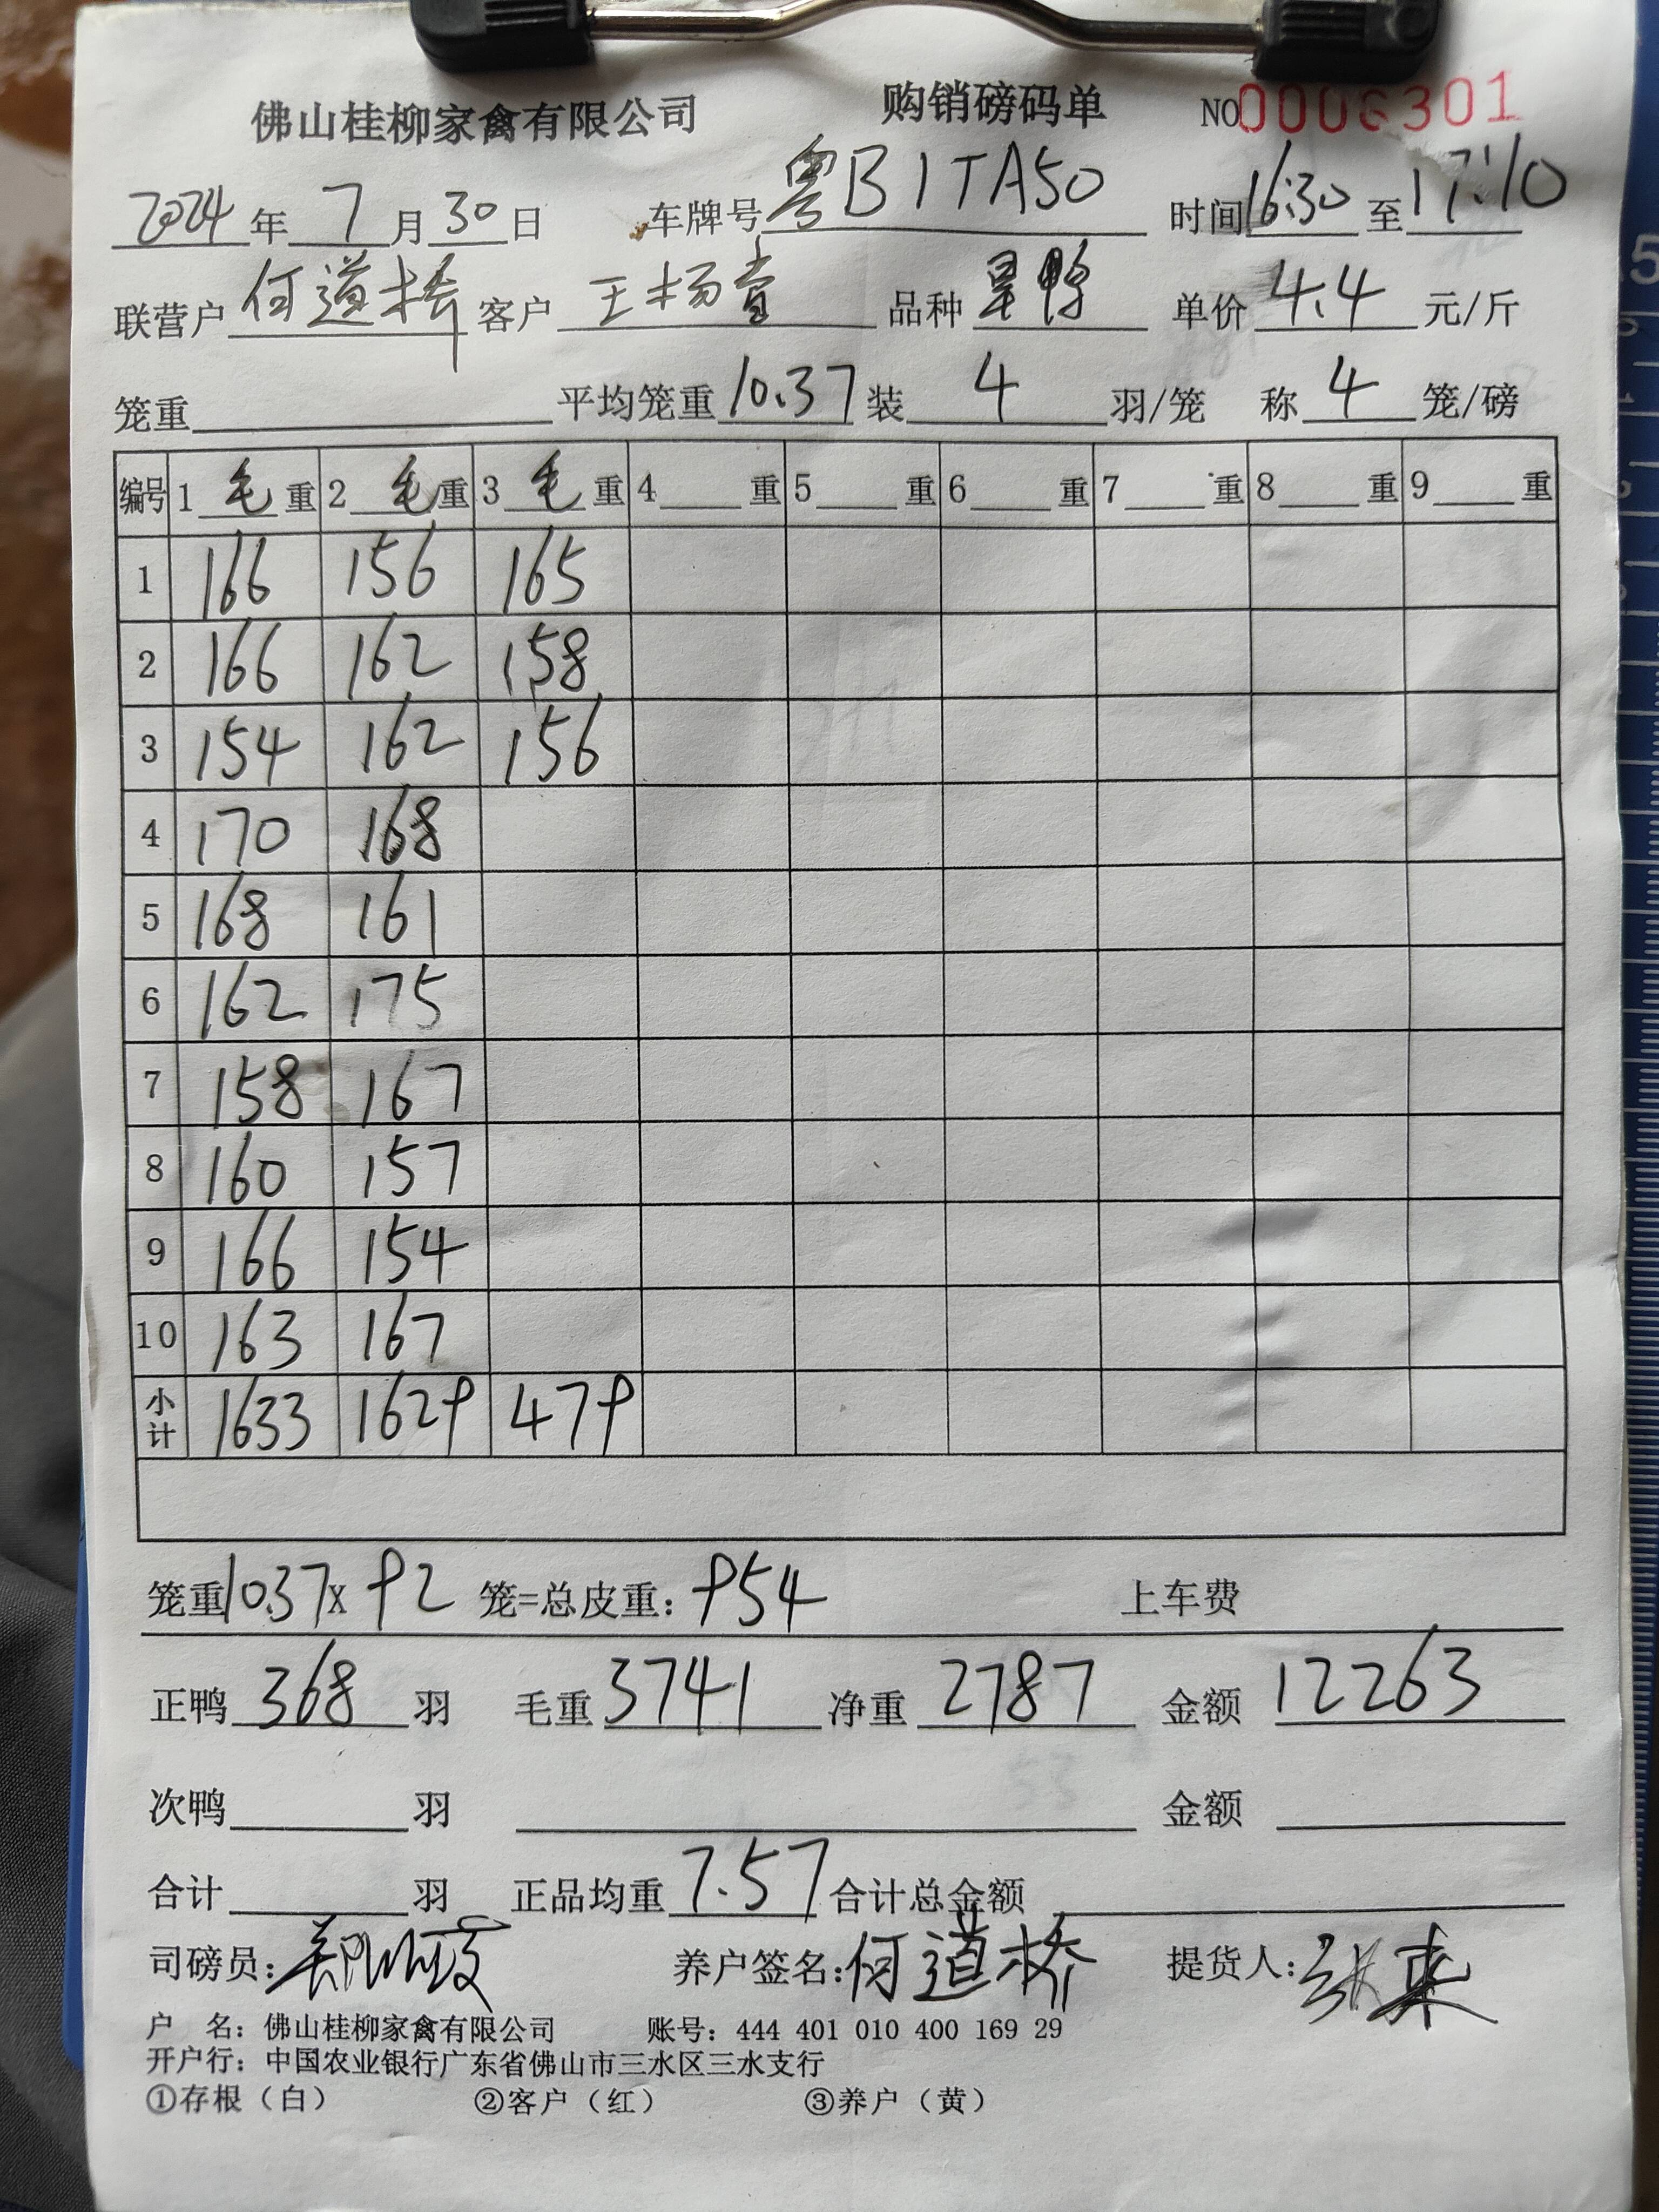 佛山桂柳家禽有限公司 购销磅码单 NO0006301
2024年7月30日 车牌号粤B1TA50 时间16:30至17:10
联营户何道桥 客户王杨 品种旱鸭 单价4.4元/斤
笼重 平均笼重10.37装4羽/笼 称4笼/磅
编号 1毛重 2毛重 3毛重 4重 5重 6重 7重 8重 9重
1 166 156 165
2 166 162 158
3 154 162 156
4 170 168
5 168 161
6 162 175
7 158 167
8 160 157
9 166 154
10 163 167
小计 1633 1629 479
笼重10.37x92笼=总皮重:954 上车费
正鸭368羽 毛重3741净重2787 金额12263
次鸭 羽 金额
合计 羽 正品均重7.57合计总金额
司磅员: 养户签名:何道桥 提货人:
户 名:佛山桂柳家禽有限公司 账号:444 401 010 400 169 29
开户行:中国农业银行广东省佛山市三水区三水支行
①存根(白) ②客户(红) ③养户(黄)